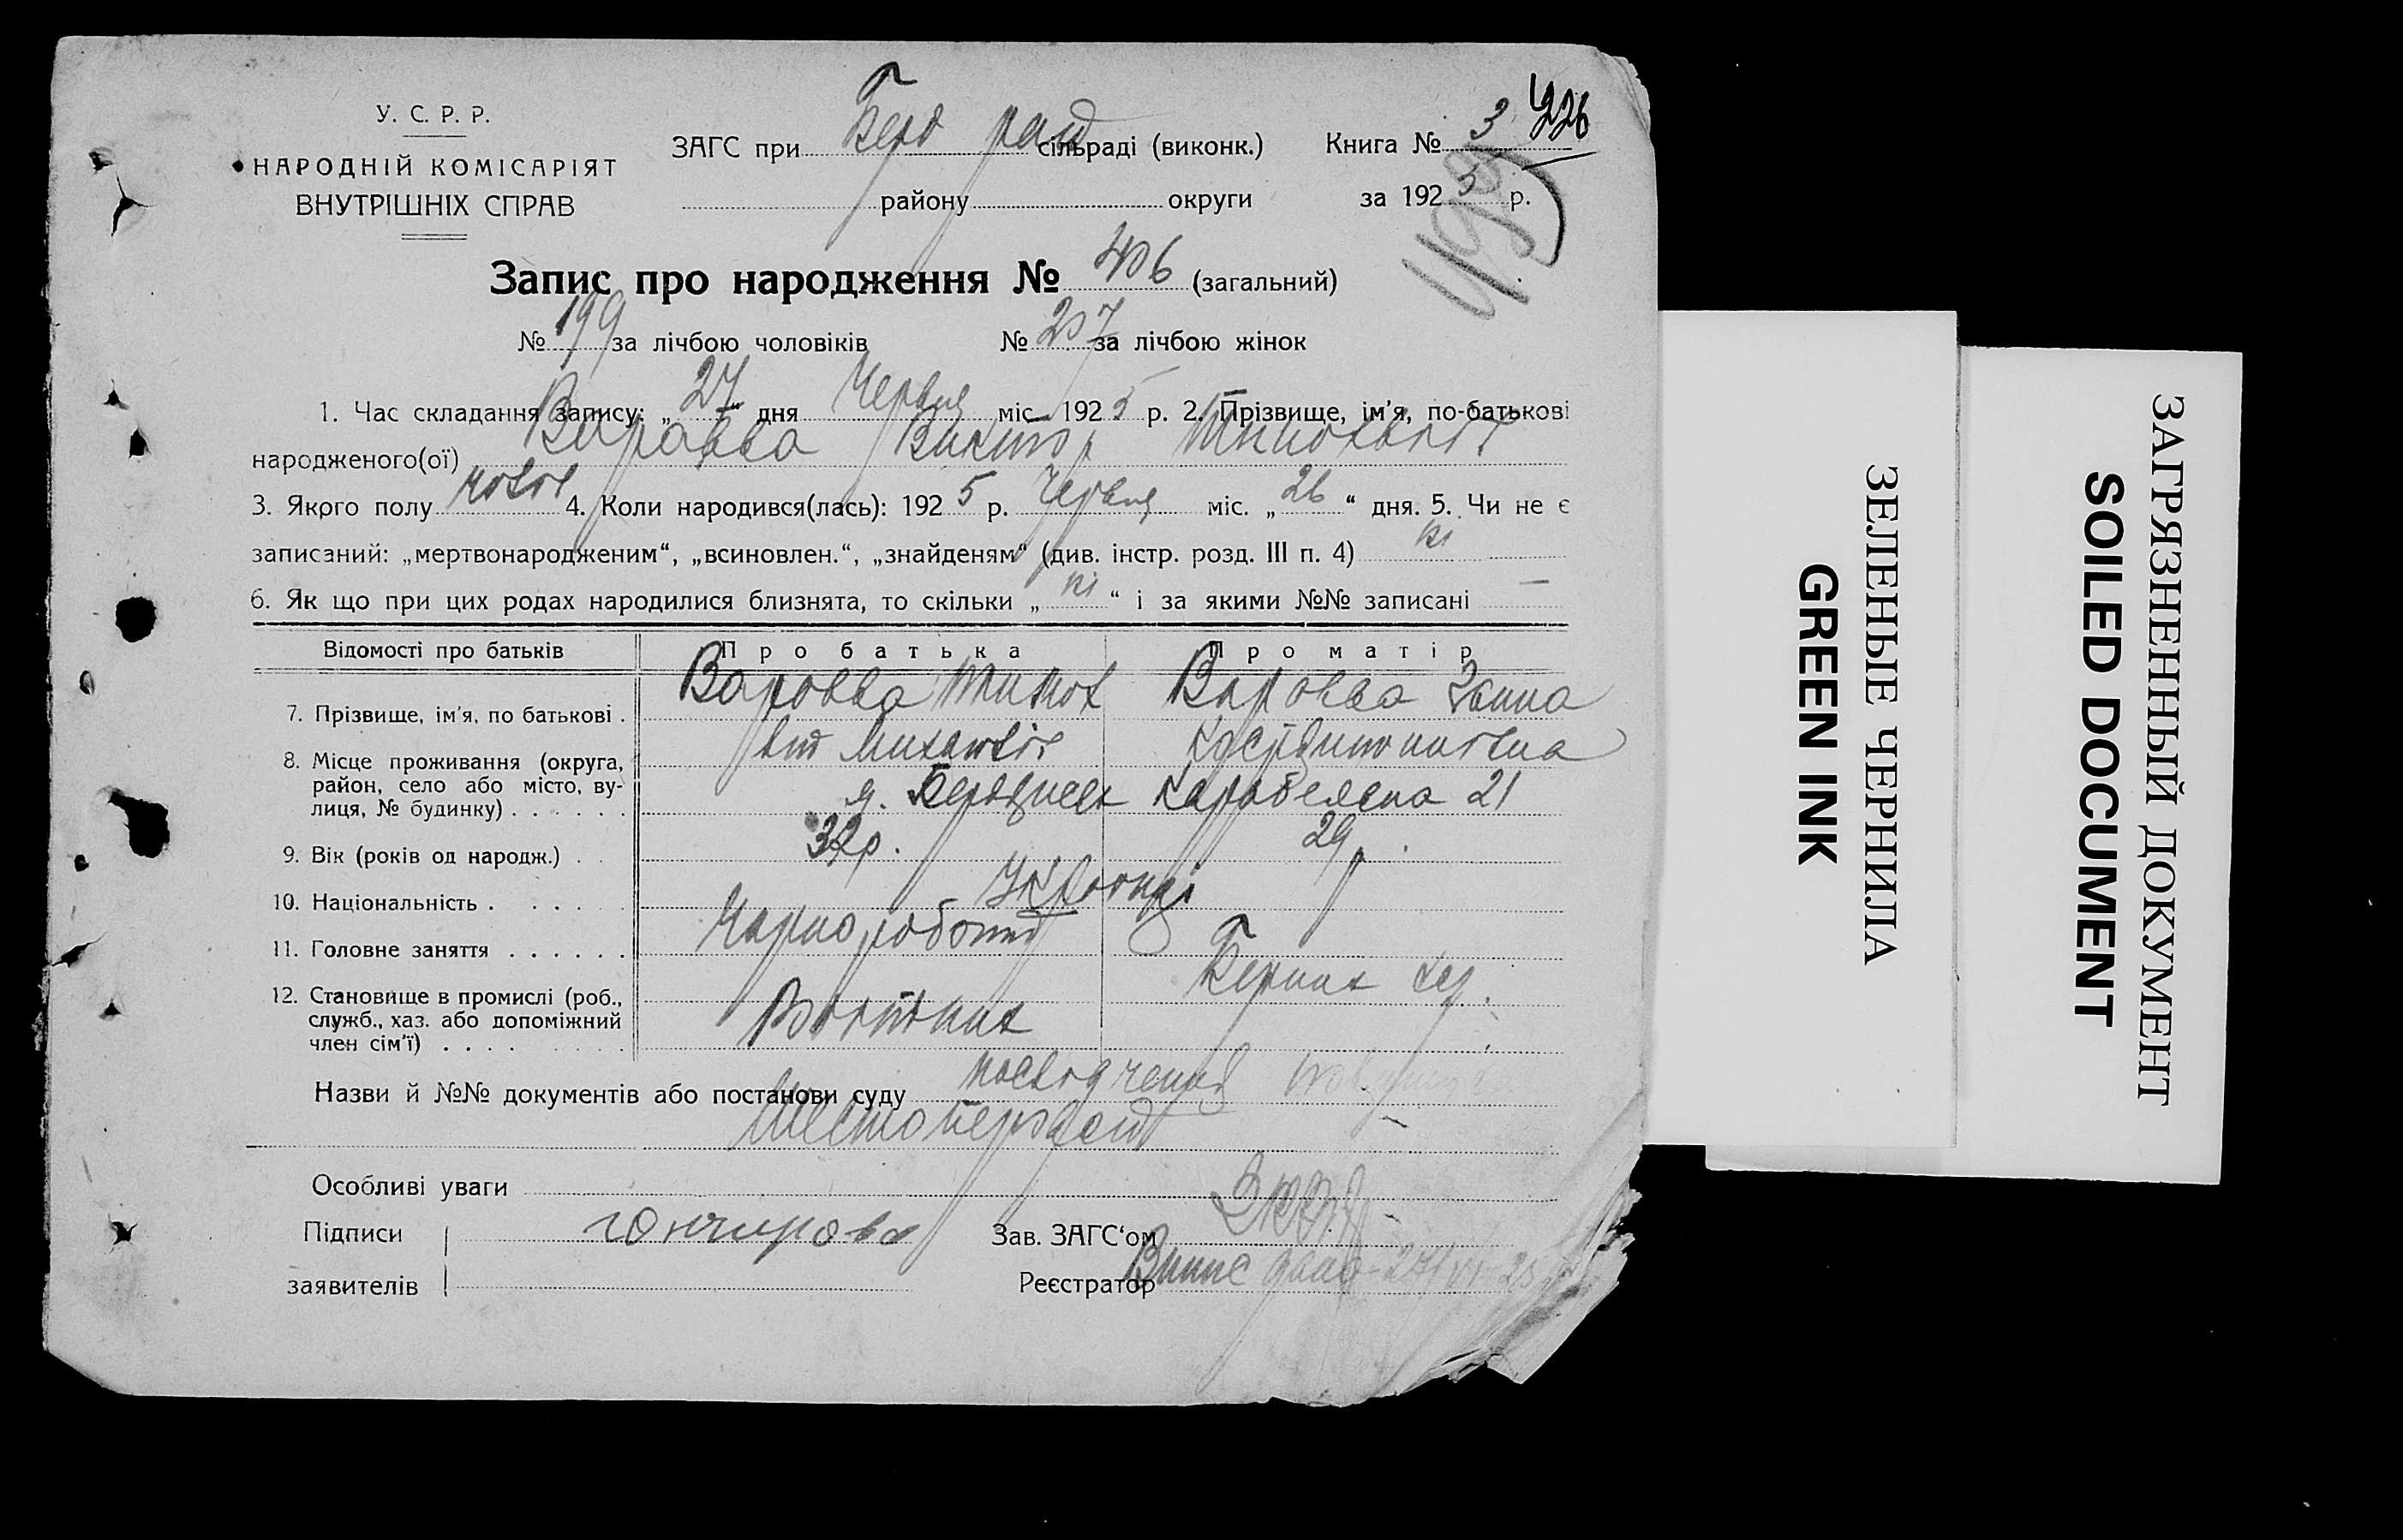 У. С. Р. Р.
НАРОДНІЙ КОМІСАРІЯТ
ВНУТРІШНІХ СПРАВ
ЗАГС при Берд рай сільраді (виконк.)
району округи
Книга № 3 226
за 1925 р.
Запис про народження № 406 (загальний)
№ 199 за лічбою чоловіків № 207 за лічбою жінок
1. Час складання запису: „ 27 " дня Червня міс. 1925 р. 2. Прізвище, ім'я, по-батькові
народженого(ої) Варавва Виктор
3. Якого полу чолов 4. Коли народився(лась): 1925 р. Червня міс. „ 26 “ дня. 5. Чи не є
записаний: „мертвонародженим“, „всиновлен.“, „знайденям“ (див. інстр. розд. III п. 4) ні
6. Як що при цих родах народилися близнята, то скільки „ ні “ і за якими №№ записані —
Відомості про батьків Про батька Про матір
7. Прізвище, ім'я, по батькові . Варавва Тимох Варавва Ганна
8. Місце проживання (округа,
район, село або місто, ву-
лиця, № будинку) . . . . . . 21
9. Вік (років од народж.) . . 32р. 29 р.
10. Національність . . . . . Українці
11. Головне заняття . . . . . . Чорноробоч
12. Становище в промислі (роб.,
служб., хаз. або допоміжний
член сім'ї) . . . . . . . . .
Назви й №№ документів або постанови суду посвідчення
Особливі уваги
Підписи гончарова Зав. ЗАГС‘ом
заявителів Реєстратор
ЗЕЛЕНЫЕ ЧЕРНИЛА
GREEN INK
ЗАГРЯЗНЕННЫЙ ДОКУМЕНТ
SOILED DOCUMENT